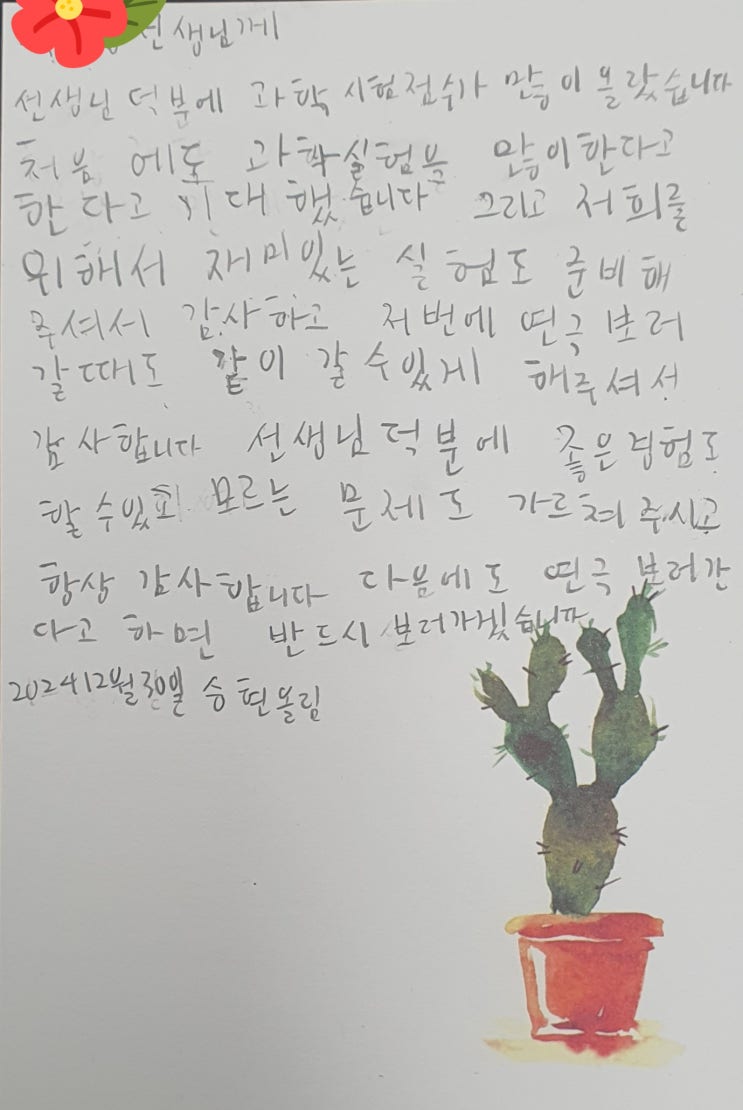 선생님께
선생님 덕분에 과학 시험점수가 많이 올랐습니다
처음 에도 과학실험을 많이한다고
한다고 기대 했습니다 그리고 저희를
위해서 재미있는 실험도 준비해
주셔서 감사하고 저번에 연극 보러
갈때도 같이 갈 수있게 해주셔서
감사합니다 선생님덕분에 좋은경험도
할 수있고 모르는 문제도 가르쳐 주시고
항상 감사합니다 다음에도 연극 보러간
다고 하면 반드시 보러가겠습니다
2024 12월30일 승현올림